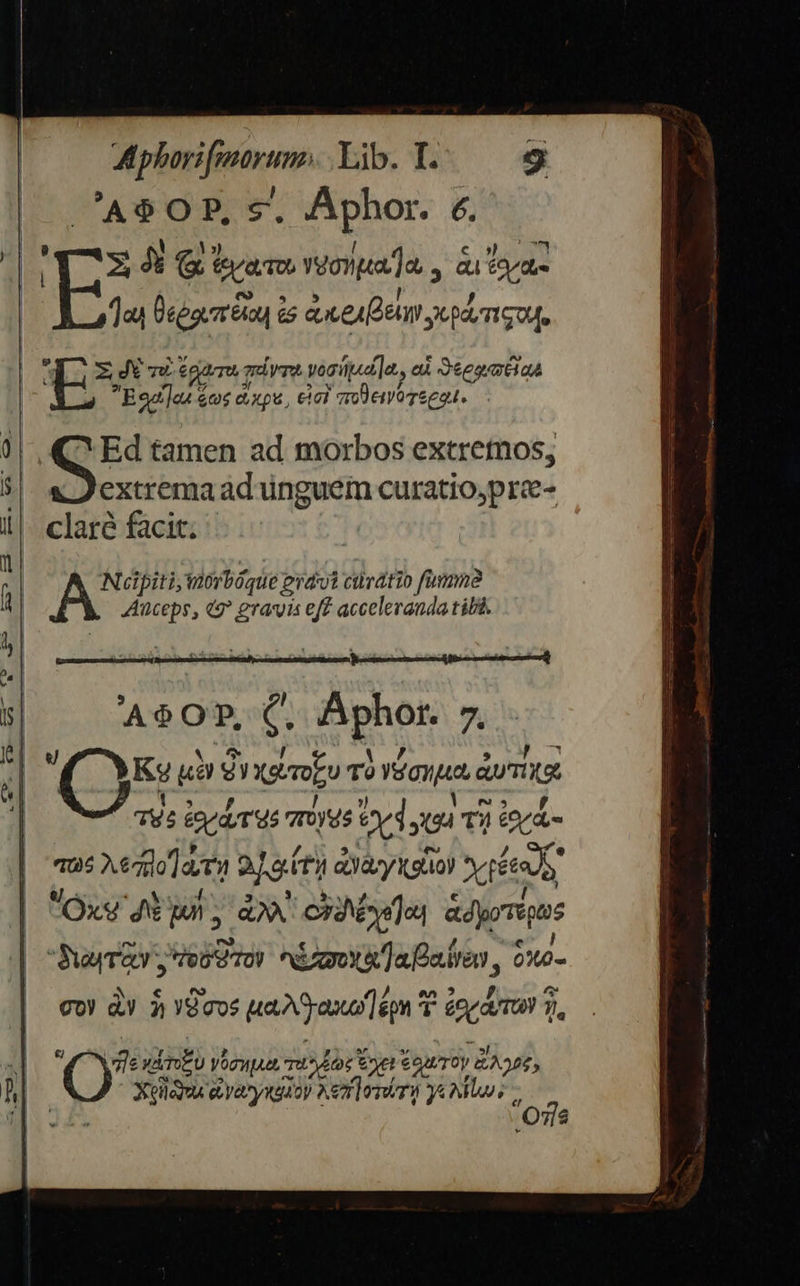 Aphoriſmorum. Lib. I. 9
ἈΦΟΡ. ς΄. Aphor. 6.
ἘΣ δὲ τὰ ἔσχατα νουσήματα, αἱ ἔσχα-
ται θεραπεῖαι ἐς ἀκριβείην κράτισται.
ἘΣ δὲ τὰ ἔσχατα πάντα νοσήματα, αἱ θεραπεῖαι
Ἔσχαται ἕως ἄκρυ, εἰσὶ ποθεινότεραι.
SEd tamen ad morbos extremos,
extrema ad unguem curatio, præ-
clarè facit.
ANcipiti, morbóque gravi curatio ſummè
Anceps, & gravis eſt acceleranda tibi.
ἈΦΟΡ. ζ΄. Aphor. 7.
ὍΚου μὲν οὖν κάτοξυ τὸ νούσημα αὐτίκα
τοὺς ἐσχάτους πόνους ἔχει, καὶ τῇ ἐσχά-
τως λεπτοτάτῃ διαίτῃ ἀναγκαῖον χρέεσθαι·
Ὅκου δὲ μὴ, ἀλλ' ἐνδέχεται ἁδροτέρως
διαιτᾶν, τοσοῦτον ὑποκαταβαίνειν, ὁκό-
σον ἂν ἡ νοῦσος μαλθακωτέρη τῶν ἐσχάτων ᾖ.
ὍΤε κάτοξυ νόσημα ταχέως ἔχει ἔσχατον ἄλγος,
Χρῆσθαι ἀναγκαῖον λεπτοτάτῃ γε
Ὅτε